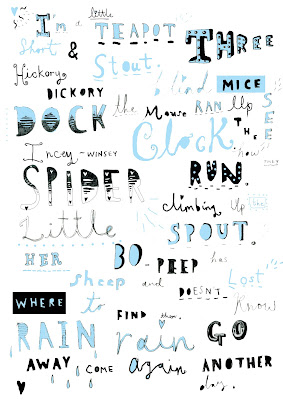 I'm a little TEAPOT
Short & Stout.
THREE
blind MICE
SEE
HOW
THEY
RUN.
Hickory
DICKORY
DOCK the Mouse RAN Up
THE
Clock
Incey-WINSEY
SPIDER
climbing Up the
SPOUT.
Little
HER
BO-PEEP has Lost
sheep and DOESN'T Know
WHERE to FIND them.
RAIN rain GO
AWAY COME again ANOTHER
day.